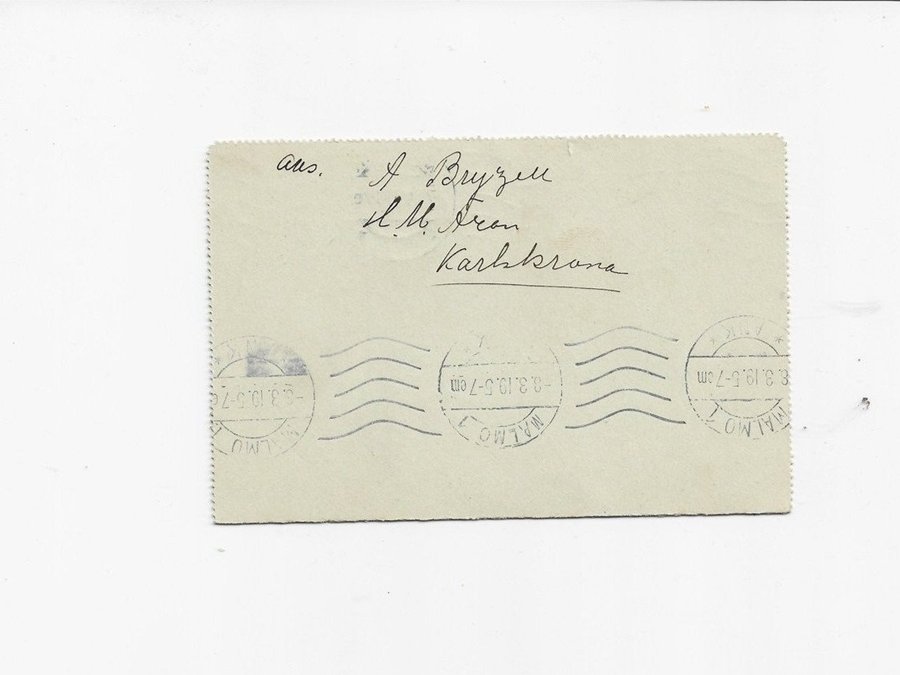 aus. A Bryzell
H.M. Äran
Karlskrona
MALMÖ 1 -8.3.19.5-7 em
MALMÖ 1 -8.3.19.5-7 em
MALMÖ 1 -8.3.19.5-7 em